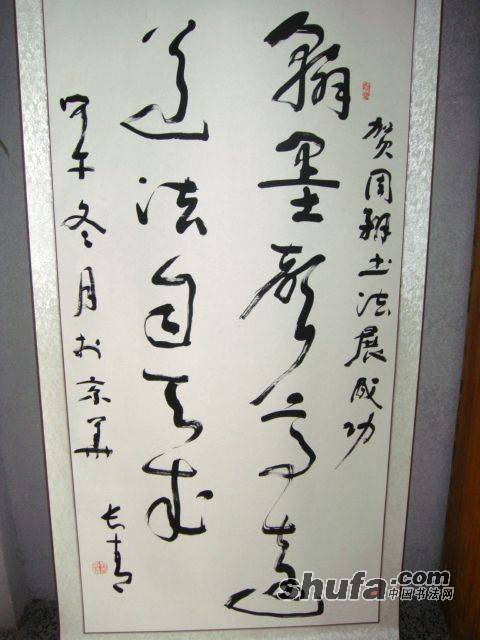 贺周书法展成功
翰墨高远
道法自天成
甲午冬月於京華
长青
shufa.com
中国书法网